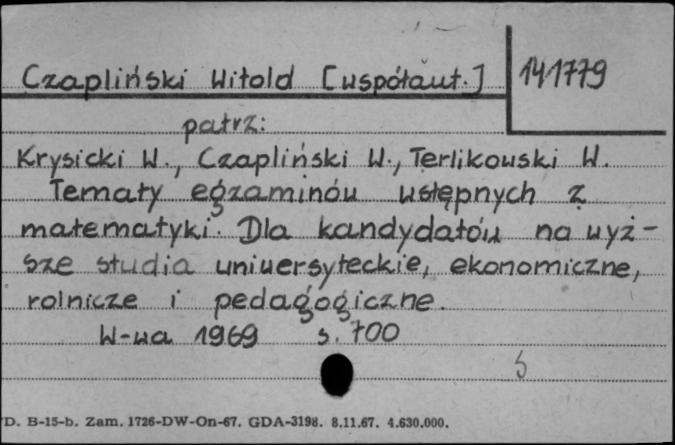 Czapliński Witold [współaut.]
141779
patrz:
Krysicki W., Czapliński W., Terlikowski W.
Tematy egzaminów wstępnych z
matematyki. Dla kandydatów na wyż-
sze studia uniwersyteckie, ekonomiczne,
rolnicze i pedagogiczne.
W-wa 1969 s. 700
S
D. B-15-b. Zam. 1726-DW-On-67. GDA-3198. 8.11.67. 4.630.000.